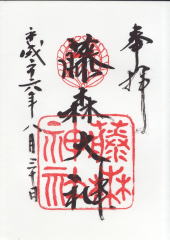 奉拝
藤森大神
藤森神社
平成二十六年八月三十日